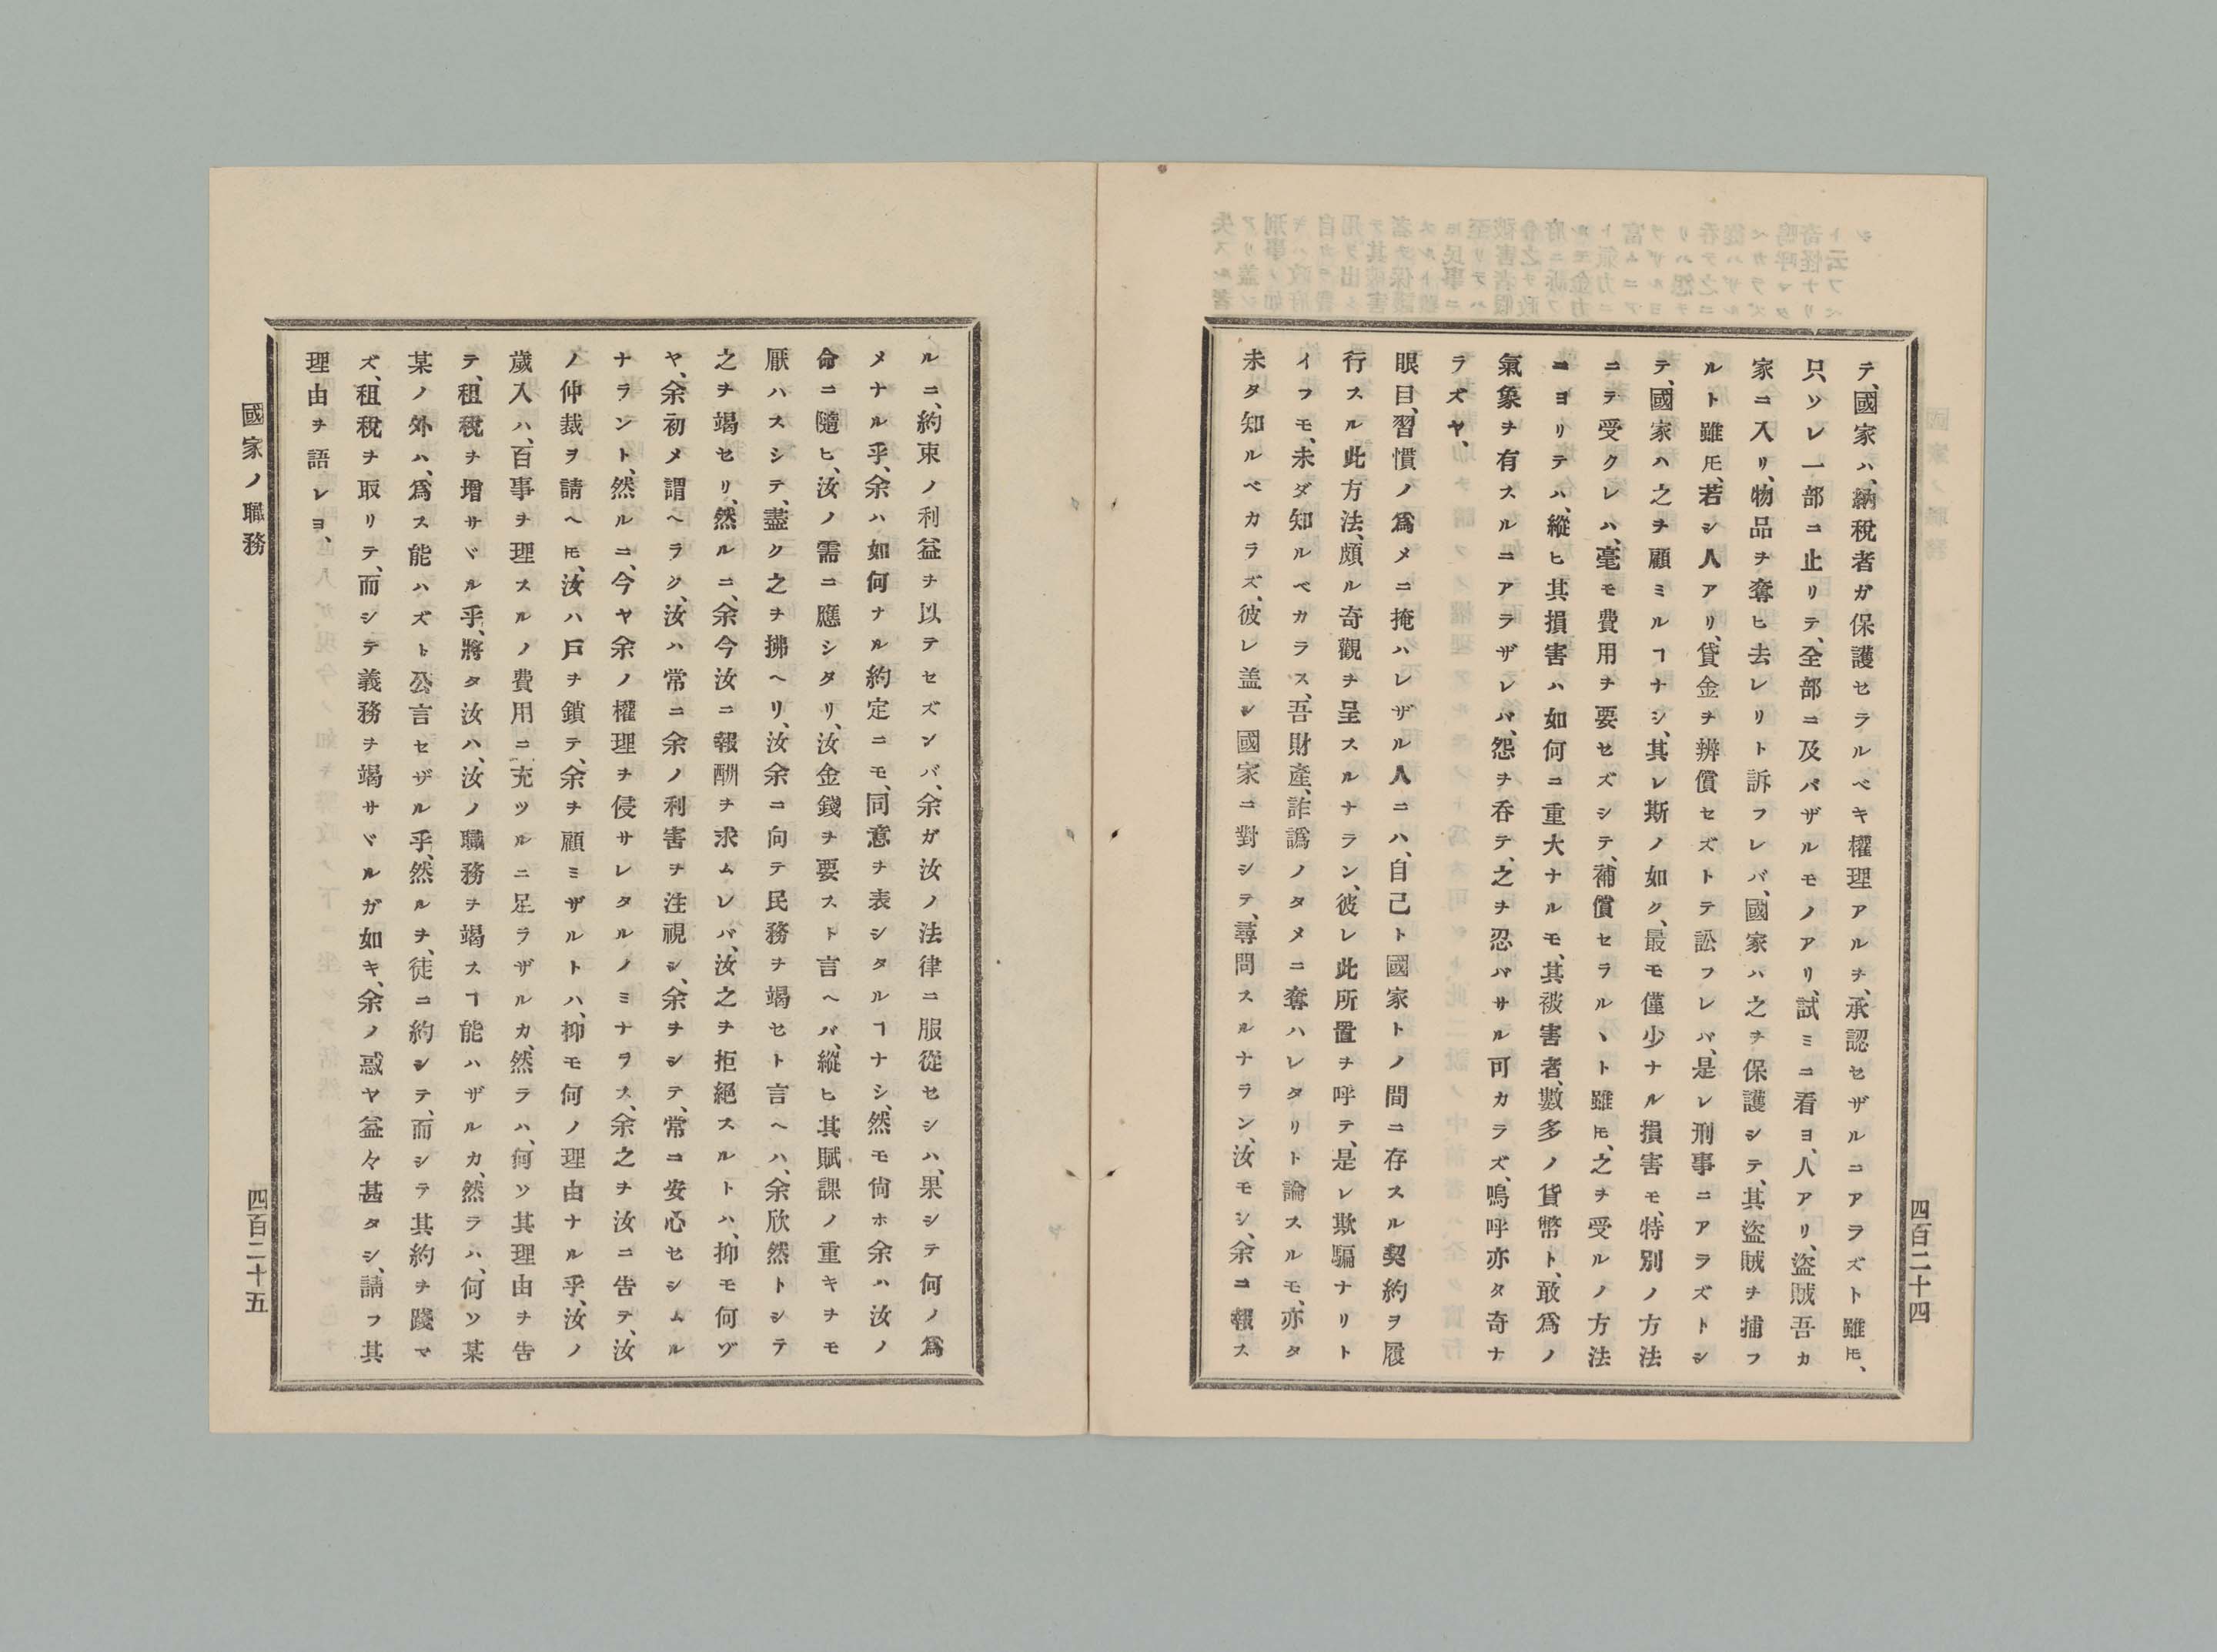 テ、國家ハ、納稅者ガ保護セラルベキ權理アルヲ、承認セザルニアラズト雖モ、
只ソレ一部ニ止リテ、全部ニ及バザルモノアリ、試ミニ看ヨ、人アリ、盜賊吾カ
家ニ入リ、物品ヲ奪ヒ去レリト訴フレバ、國家ハ之ヲ保護シテ、其盜賊ヲ捕フ
ルト雖モ、若シ人アリ、貸金ヲ辨償セズトテ訟フレバ、是レ刑事ニアラズトシ
テ、國家ハ之ヲ顧ミルヿナシ、其レ斯ノ如ク、最モ僅少ナル損害モ、特別ノ方法
ニテ受クレハ、毫モ費用ヲ要セズシテ、補償セラルヽト雖モ、之ヲ受ルノ方法
ニヨリテハ、縱ヒ其損害ハ如何ニ重大ナルモ、其被害者、數多ノ貨幣ト、敢爲ノ
氣象ヲ有スルニアラザレバ、怨ヲ呑テ、之ヲ忍バサル可カラズ、嗚呼亦タ奇ナ
ラズヤ、
眼目、習慣ノ爲メニ掩ハレザル人ニハ、自己ト國家トノ間ニ存スル契約ヲ履
行スル此方法、頗ル奇觀ヲ呈スルナラン、彼レ此所置ヲ呼テ、是レ欺騙ナリト
イフモ、未ダ知ルベカラス、吾財產、詐譌ノタメニ奪ハレタリト論スルモ、亦タ
未タ知ルベカラズ、彼レ盖シ國家ニ對シテ、尋問スルナラン、汝モシ、余ニ報ス
四百二十四
ルニ、約束ノ利益ヲ以テセズンバ、余ガ汝ノ法律ニ服從セシハ、果シテ何ノ爲
メナル乎、余ハ如何ナル約定ニモ、同意ヲ表シタルヿナシ、然モ尙ホ余ハ汝ノ
命ニ隨ヒ、汝ノ需ニ應シタリ、汝金錢ヲ要スト言ヘバ、縱ヒ其賦課ノ重キヲモ
厭ハスシテ、盡ク之ヲ拂ヘリ、汝余ニ向テ民務ヲ竭セト言ヘハ、余欣然トシテ
之ヲ竭セリ、然ルニ、余今汝ニ報酬ヲ求ムレバ、汝之ヲ拒絕スルトハ、抑モ何ゾ
ヤ、余初メ謂ヘラク、汝ハ常ニ余ノ利害ヲ注視シ、余ヲシテ、常ニ安心セシムル
ナラント、然ルニ、今ヤ余ノ權理ヲ侵サレタルノミナラス、余之ヲ汝ニ告テ、汝
ノ仲裁ヲ請ヘモ、汝ハ戶ヲ鎖テ、余ヲ顧ミザルトハ、抑モ何ノ理由ナル乎、汝ノ
歲入ハ、百事ヲ理スルノ費用ニ充ツルニ足ラザルカ、然ラハ、何ソ其理由ヲ吿
テ、租稅ヲ增サヾル乎、將タ汝ハ、汝ノ職務ヲ竭スヿ能ハザルカ、然ラハ、何ソ某
某ノ外ハ、爲ス能ハズト公言セザル乎、然ルヲ、徒ニ約シテ、而シテ其約ヲ踐マ
ズ、租稅ヲ取リテ、而シテ義務ヲ竭サヾルガ如キ、余ノ惑ヤ益々甚タシ、請フ其
理由ヲ語レヨ、
國家ノ職務
四百二十五